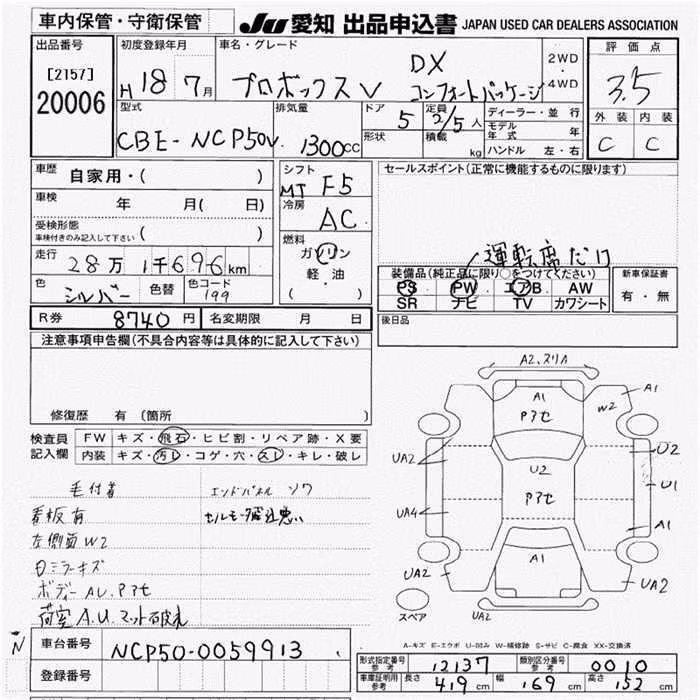 車内保管・守衛保管
JU 愛知 出品申込書 JAPAN USED CAR DEALERS ASSOCIATION
出品番号
[2157]
20006
初度登録年月
H 18 7月
車名・グレード
プロボックスV DX コンフォートパッケージ
2WD
・
4WD
評価点
3.5
外装 内装
C C
型式
CBE-NCP50V
排気量
1300cc
ドア
5
形状
定員
2/5人
積載 kg
ディーラー・並行
モデル年式 年
ハンドル 左・右
車歴
自家用・( )
車検 年 月( 日)
受検形態
車検付きのみ記入して下さい ( )
走行 28万1千696km
色 シルバー 色替 色コード 199
シフト
MT F5
冷房
AC
燃料
ガソリン
軽・油
( )
セールスポイント(正常に機能するものに限ります)
運転席だけ
装備品(純正品に限り○をつけてください)
PS PW エアB AW
SR ナビ TV カワシート
新車保証書
有・無
R券 8740円 名変期限 月 日
後日品
注意事項申告欄(不具合内容等は具体的に記入して下さい)
修復歴 有(箇所 )
検査員
記入欄
FW キズ・飛石・ヒビ割・リペア跡・X要
内装 キズ・汚レ・コゲ・穴・スレ・キレ・破レ
毛付着 エンドパネル ソワ
看板有
左側面W2
ボディーAU、Pアセ
荷室A.U.マット破れ
A2、スリA
A1
Pアセ
W2
A1
UA2
U2
U2
Pアセ
U1
UA4
A1
A1
UA2
UA2
UA2
スペア
A-キズ E-エクボ U-凹み W-補修跡 S-サビ C-腐食 XX-交換済
N
車台番号 NCP50-0059913
登録番号
形式指定番号
参考
12137
類別区分番号
参考
0010
車庫証明用
参考
長さ 419cm 幅 169cm 高さ 152cm